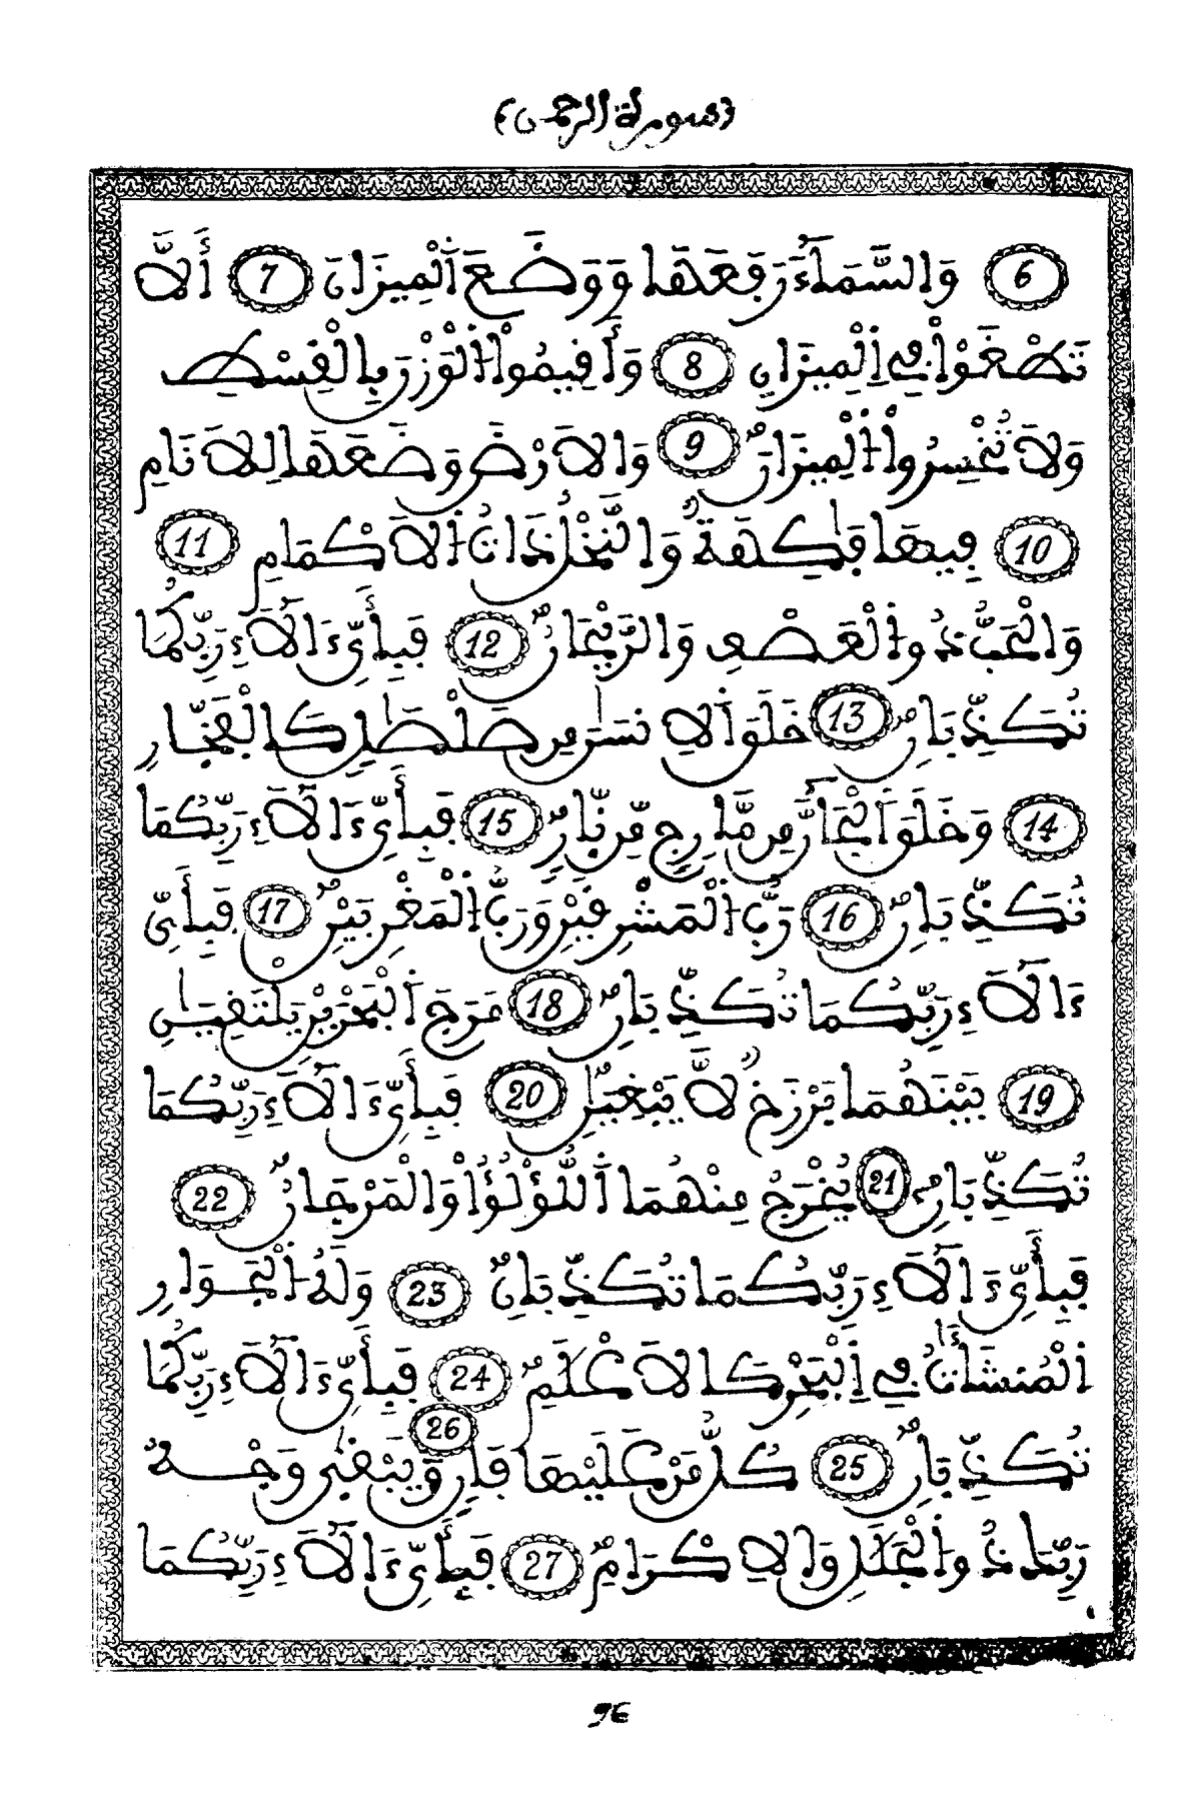 (سورة الرحمن)
6 وَالسَّمَآءَ رَفَعَهَا وَوَضَعَ اَ۬لْمِيزَانَ 7 أَلَّا
تَطْغَوْاْ فِي اِ۬لْمِيزَانِ 8 وَأَقِيمُواْ اُ۬لْوَزْنَ بِالْقِسْطِ
وَلَا تُخْسِرُواْ اُ۬لْمِيزَانَ 9 وَالَارْضَ وَضَعَهَا لِلَانَامِ
10 فِيهَا فَٰكِهَةٌ وَالنَّخْلُ ذَاتُ اُ۬لَاكْمَامِ 11
وَالْحَبُّ ذُو اُ۬لْعَصْفِ وَالرَّيْحَانُ 12 فَبِأَيِّ ءَالَآءِ رَبِّكُمَا
تُكَذِّبَانِ 13 خَلَقَ اَ۬لِانسَٰنَ مِن صَلْصَٰلٍ كَالْفَخَّارِ
14 وَخَلَقَ اَ۬لْجَآنَّ مِن مَّارِجٍ مِّن نَّارٍ 15 فَبِأَيِّ ءَالَآءِ رَبِّكُمَا
تُكَذِّبَانِ 16 رَبُّ اُ۬لْمَشْرِقَيْنِ وَرَبُّ اُ۬لْمَغْرِبَيْنِ 17 فَبِأَيِّ
ءَالَآءِ رَبِّكُمَا تُكَذِّبَانِ 18 مَرَجَ اَ۬لْبَحْرَيْنِ يَلْتَقِيَٰنِ
19 بَيْنَهُمَا بَرْزَخٌ لَّا يَبْغِيَٰنِ 20 فَبِأَيِّ ءَالَآءِ رَبِّكُمَا
تُكَذِّبَانِ 21 يُخْرَجُ مِنْهُمَا اَ۬للُّؤْلُؤُاْ وَالْمَرْجَانُ 22
فَبِأَيِّ ءَالَآءِ رَبِّكُمَا تُكَذِّبَانِ 23 وَلَهُ اُ۬لْجَوَارِ
اِ۬لْمُنشَـَٔاتُ فِي اِ۬لْبَحْرِ كَالَاعْلَٰمِ 24 فَبِأَيِّ ءَالَآءِ رَبِّكُمَا
تُكَذِّبَانِ 25 كُلُّ مَنْ عَلَيْهَا فَانٍ 26 وَيَبْقَىٰ وَجْهُ
رَبِّكَ ذُو اُ۬لْجَلَٰلِ وَالِاكْرَامِ 27 فَبِأَيِّ ءَالَآءِ رَبِّكُمَا
96